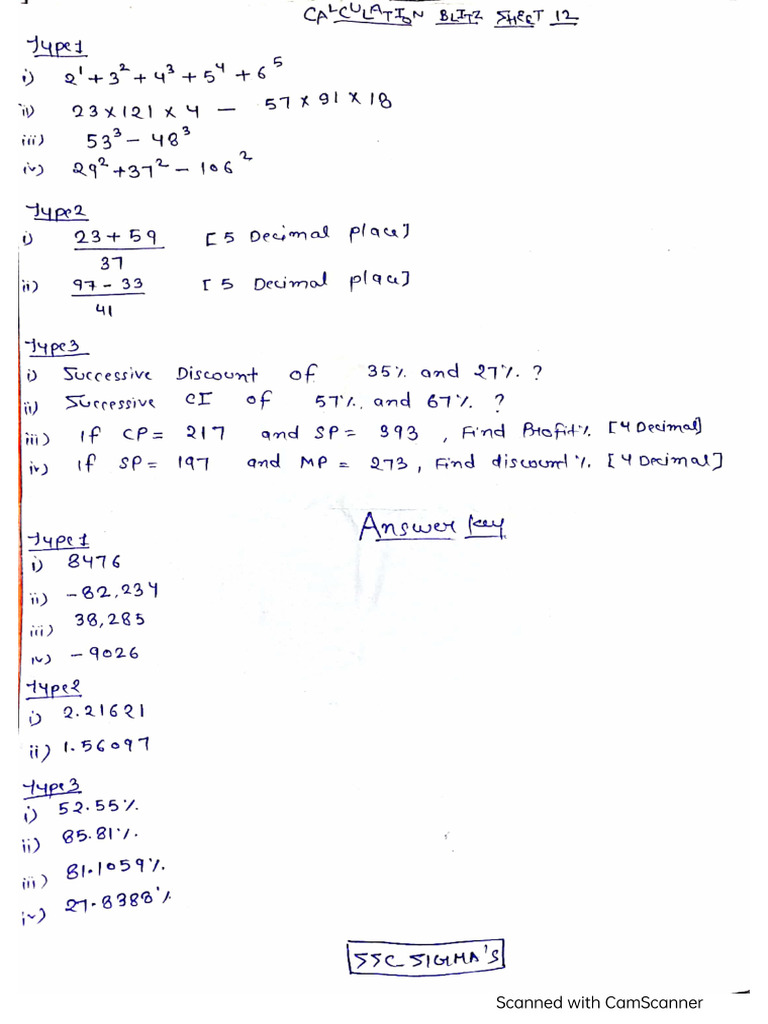 CALCULATION BLITZ SHEET 12
Type 1
i) 2¹ + 3² + 4³ + 5⁴ + 6⁵
ii) 23 × 121 × 4 — 57 × 91 × 18
iii) 53³ – 48³
iv) 29² + 37² – 106²
Type 2
i) 23 + 59 / 37 [5 Decimal place]
ii) 97 – 33 / 41 [5 Decimal place]
Type 3
i) Successive Discount of 35% and 27%. ?
ii) Successive CI of 57%, and 67%. ?
iii) If CP = 217 and SP = 393, Find Profit% [4 Decimal]
iv) If SP = 197 and MP = 273, Find discount %. [4 Decimal]
Answer key
Type 1
i) 8476
ii) -82,234
iii) 38,285
iv) -9026
Type 2
i) 2.21621
ii) 1.56097
Type 3
i) 52.55%.
ii) 85.81%.
iii) 81.1059%.
iv) 27.8388%
SSC SIGMA'S
Scanned with CamScanner